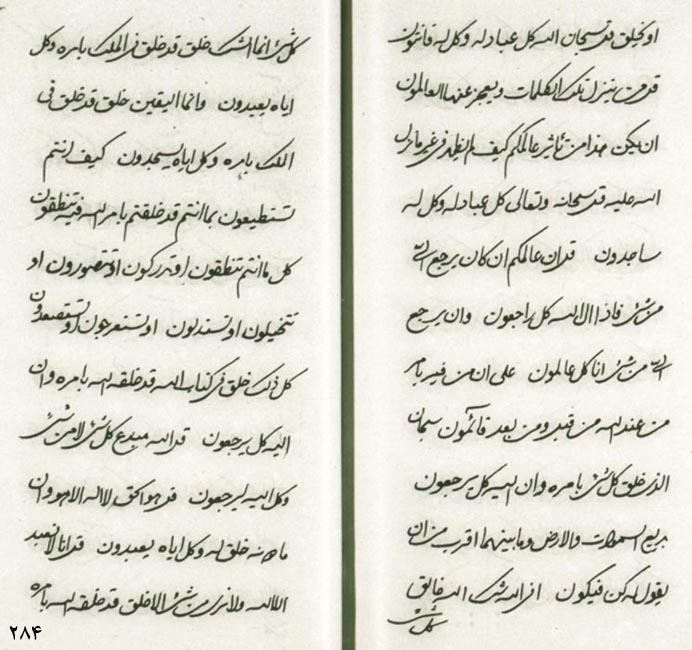 او يخلق قد سبحان الله كل عباد له وكل له قانتون
قد من ينزل تلك الكلمات ويعجز عنها العالمون
ان يكن هذا من تأثير عالمكم كيف لم يظهر في غير ما نزل
الله عليه قد سبحانه وتعالى كل عباد له وكل له
ساجدون قد ان عالمكم ان كان يرجع الى
من شئ فاذا الى الله كل راجعون وان يرجع
الى من شئ انا كل عالمون على ان من فيه بامر
من عند الله من قبل ومن بعد قائمون سبحان
الذي خلق كل شئ بامره وان اليه كل يرجعون
بديع السموات والارض وما بينهما اقرب من ان
يقول له كن فيكون افي الله شك الله خالق
كل شئ
كل شئ انما الشك خلق قد خلق في الملك بامره وكل
اياه يعبدون وانما اليقين خلق قد خلق في
الملك بامره وكل اياه يسجدون كيف انتم
تستطيعون بما انتم قد خلقتم بامر الله فيه تنطقون
كل ما انتم تنطقون او تدركون او تتصورون او
تتخيلون او تستدلون او تستعرجون او تستصعدون
كل ذلك خلق في كتاب الله قد خلقه الله بامره وان
اليه كل يرجعون قد الله مبدع كل شئ لا من شئ
وكل اليه ليرجعون قد هو الحق لا اله الا هو وان
ما دونه خلق له وكل اياه يعبدون قد انا لا نعبد
الا الله ولا نرى من شئ الا خلق قد خلقه الله بامره
٢٨۴